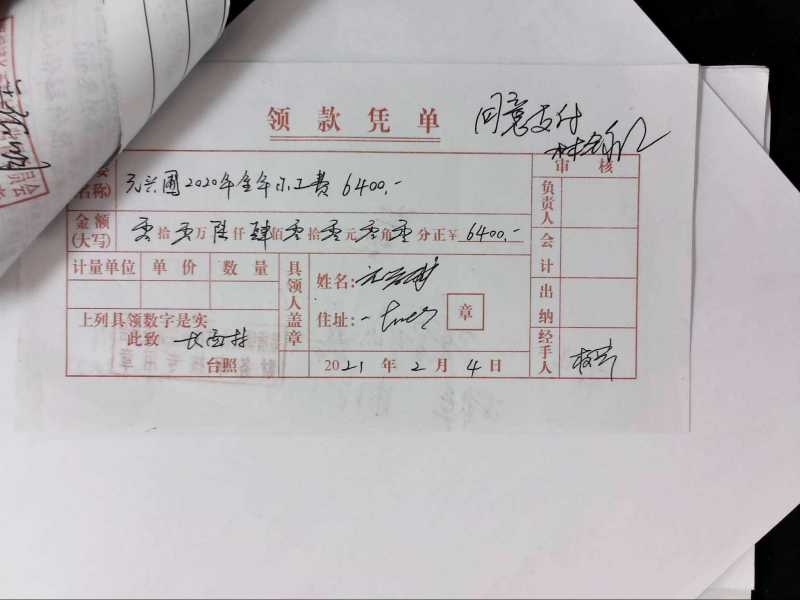 领款凭单
同意支付
审核
(名称) 元兴圃2020年全年小工费 6400.-
金额(大写) 零拾零万陆仟肆佰零拾零元零角零分正¥ 6400.-
计量单位 单价 数量
上列具领数字是实
此致
台照
具领人盖章
姓名:
住址:
章
2021年2月4日
负责人
会计
出纳
经手人